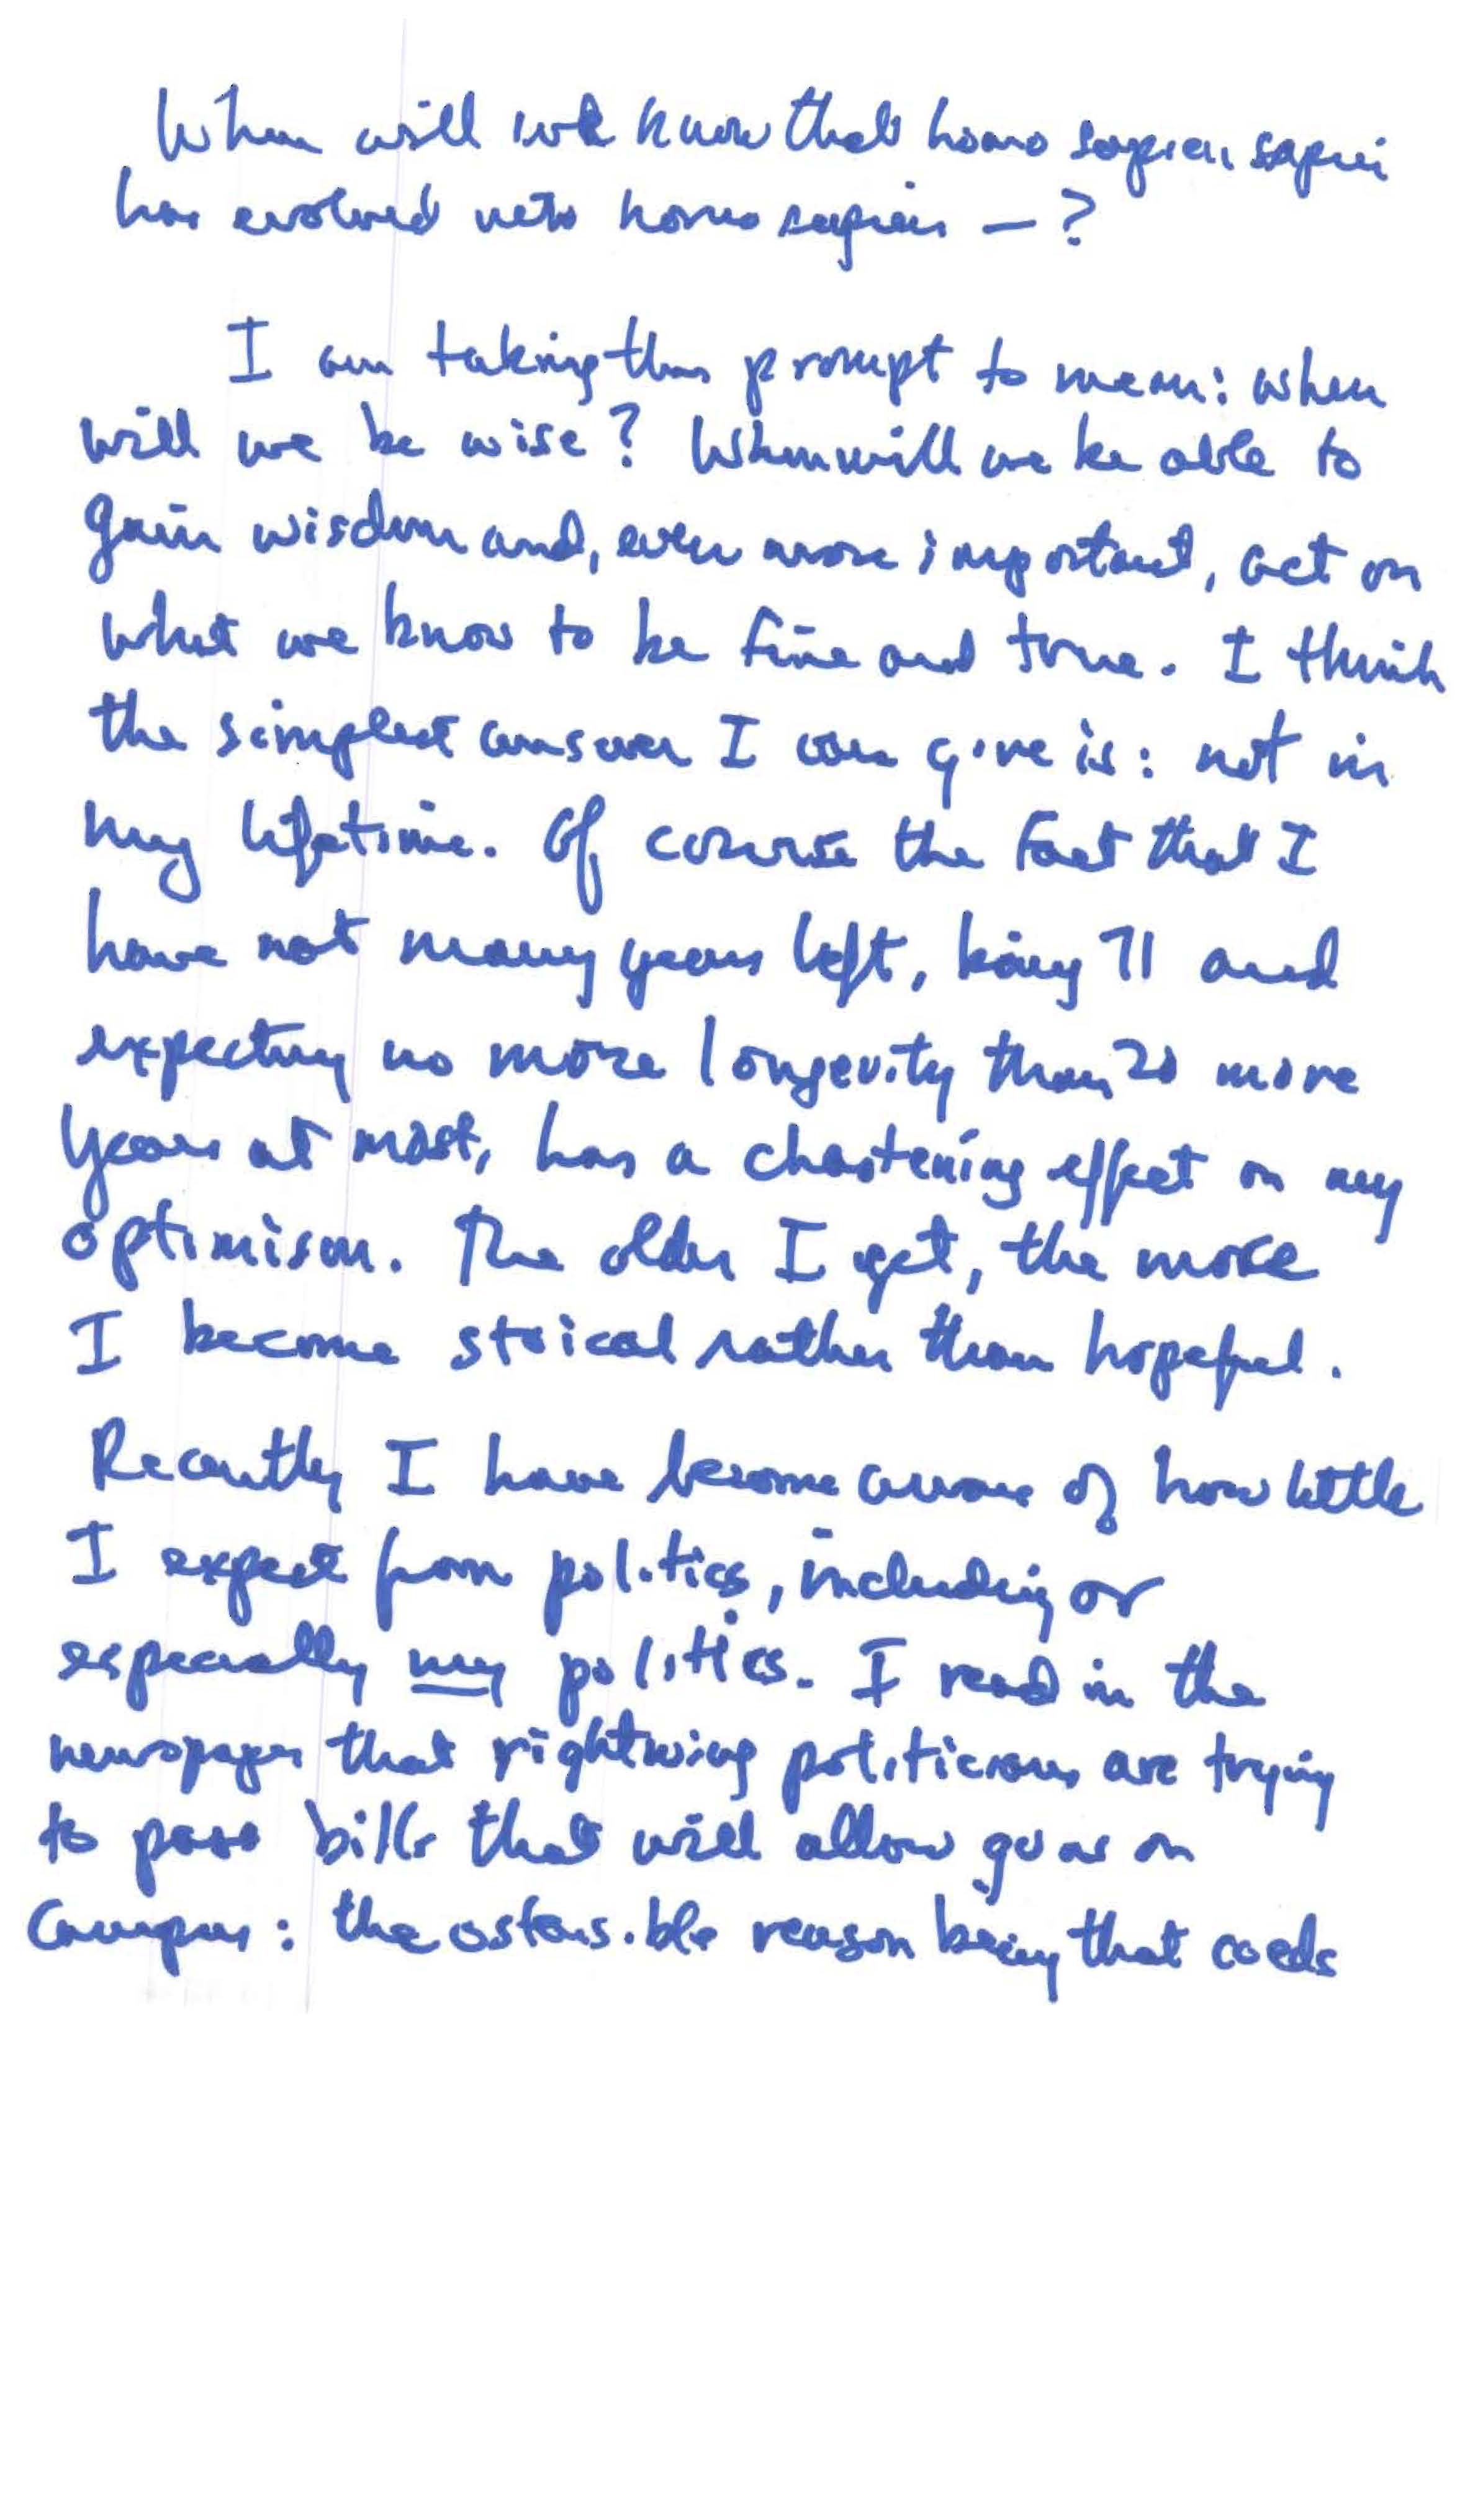 When will we know that homo sapien sapien
has evolved into homo sapiens — ?
I am taking this prompt to mean: when
will we be wise? When will we be able to
gain wisdom and, even more important, act on
what we know to be fine and true. I think
the simplest answer I can give is: not in
my lifetime. Of course the fact that I
have not many years left, being 71 and
expecting no more longevity than 20 more
years at most, has a chastening effect on my
optimism. The older I get, the more
I become stoical rather than hopeful.
Recently I have become aware of how little
I expect from politics, including or
especially my politics. I read in the
newspaper that rightwing politicians are trying
to pass bills that will allow guns on
campus: the ostensible reason being that coeds